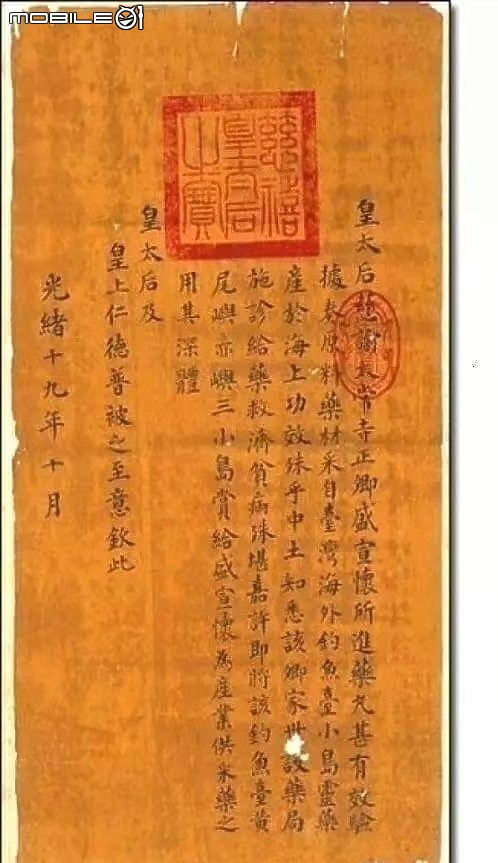 MOBILE01
慈禧
皇太后
之寶
皇太后慈諭太常寺正卿盛宣懷所進藥丸甚有效驗
據奏原料藥材采自臺灣海外釣魚臺小島靈藥
產於海上功效殊乎中土知悉該卿家世設藥局
施診給藥救濟貧病殊堪嘉許即將該釣魚臺黃
尾嶼赤嶼三小島賞給盛宣懷為產業供采藥之
用其深體
皇太后及
皇上仁德普被之至意欽此
光緒十九年十月